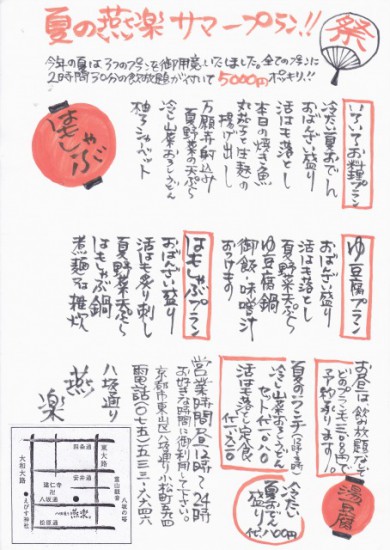 夏の燕楽 サマープラン!!
祭
今年の夏は3つのプランを御用意いたしました。全てのプランに
2時間30分の飲放題が付いて5000円ポッキリ!!
はもしゃぶ
いろいろお料理プラン
冷たい夏おでん
おばんざい盛り
活はも落とし
本日の焼き魚
丸茄子と生麩の
揚げ出し
万願寺射込み
夏野菜の天ぷら
冷し山菜おろしうどん
柚子シャーベット
ゆ豆腐プラン
おばんざい盛り
活はも落とし
夏野菜天ぷら
ゆ豆腐鍋
御飯・味噌汁
おつけます
はもしゃぶプラン
おばんざい盛り
活はも炙り刺し
夏野菜天ぷら
はもしゃぶ鍋
煮麺又は雑炊
お昼は飲放題なしで
どのプランも3500円で
予約承ります!
湯豆腐
夏のランチ
冷し山菜おろしうどん
セット
活はも落とし定食
冷たい
夏おでん
盛り
営業時間 昼12時〜24時
お好きな時間に御利用して下さい。
京都市東山区八坂通り小松町五四
電話(〇七五)五三三-六九四六
八坂通り
燕楽
大和大路
東大路
安井通
建仁寺
八坂通
八坂の塔
松原通
えびす神社
燕楽